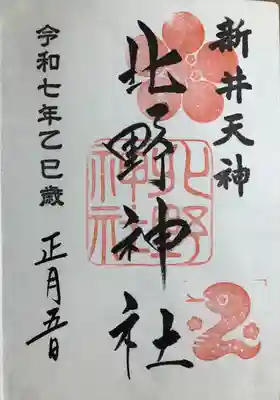 新井天神
北野神社
北野
神社
令和七年乙巳歳
正月五日